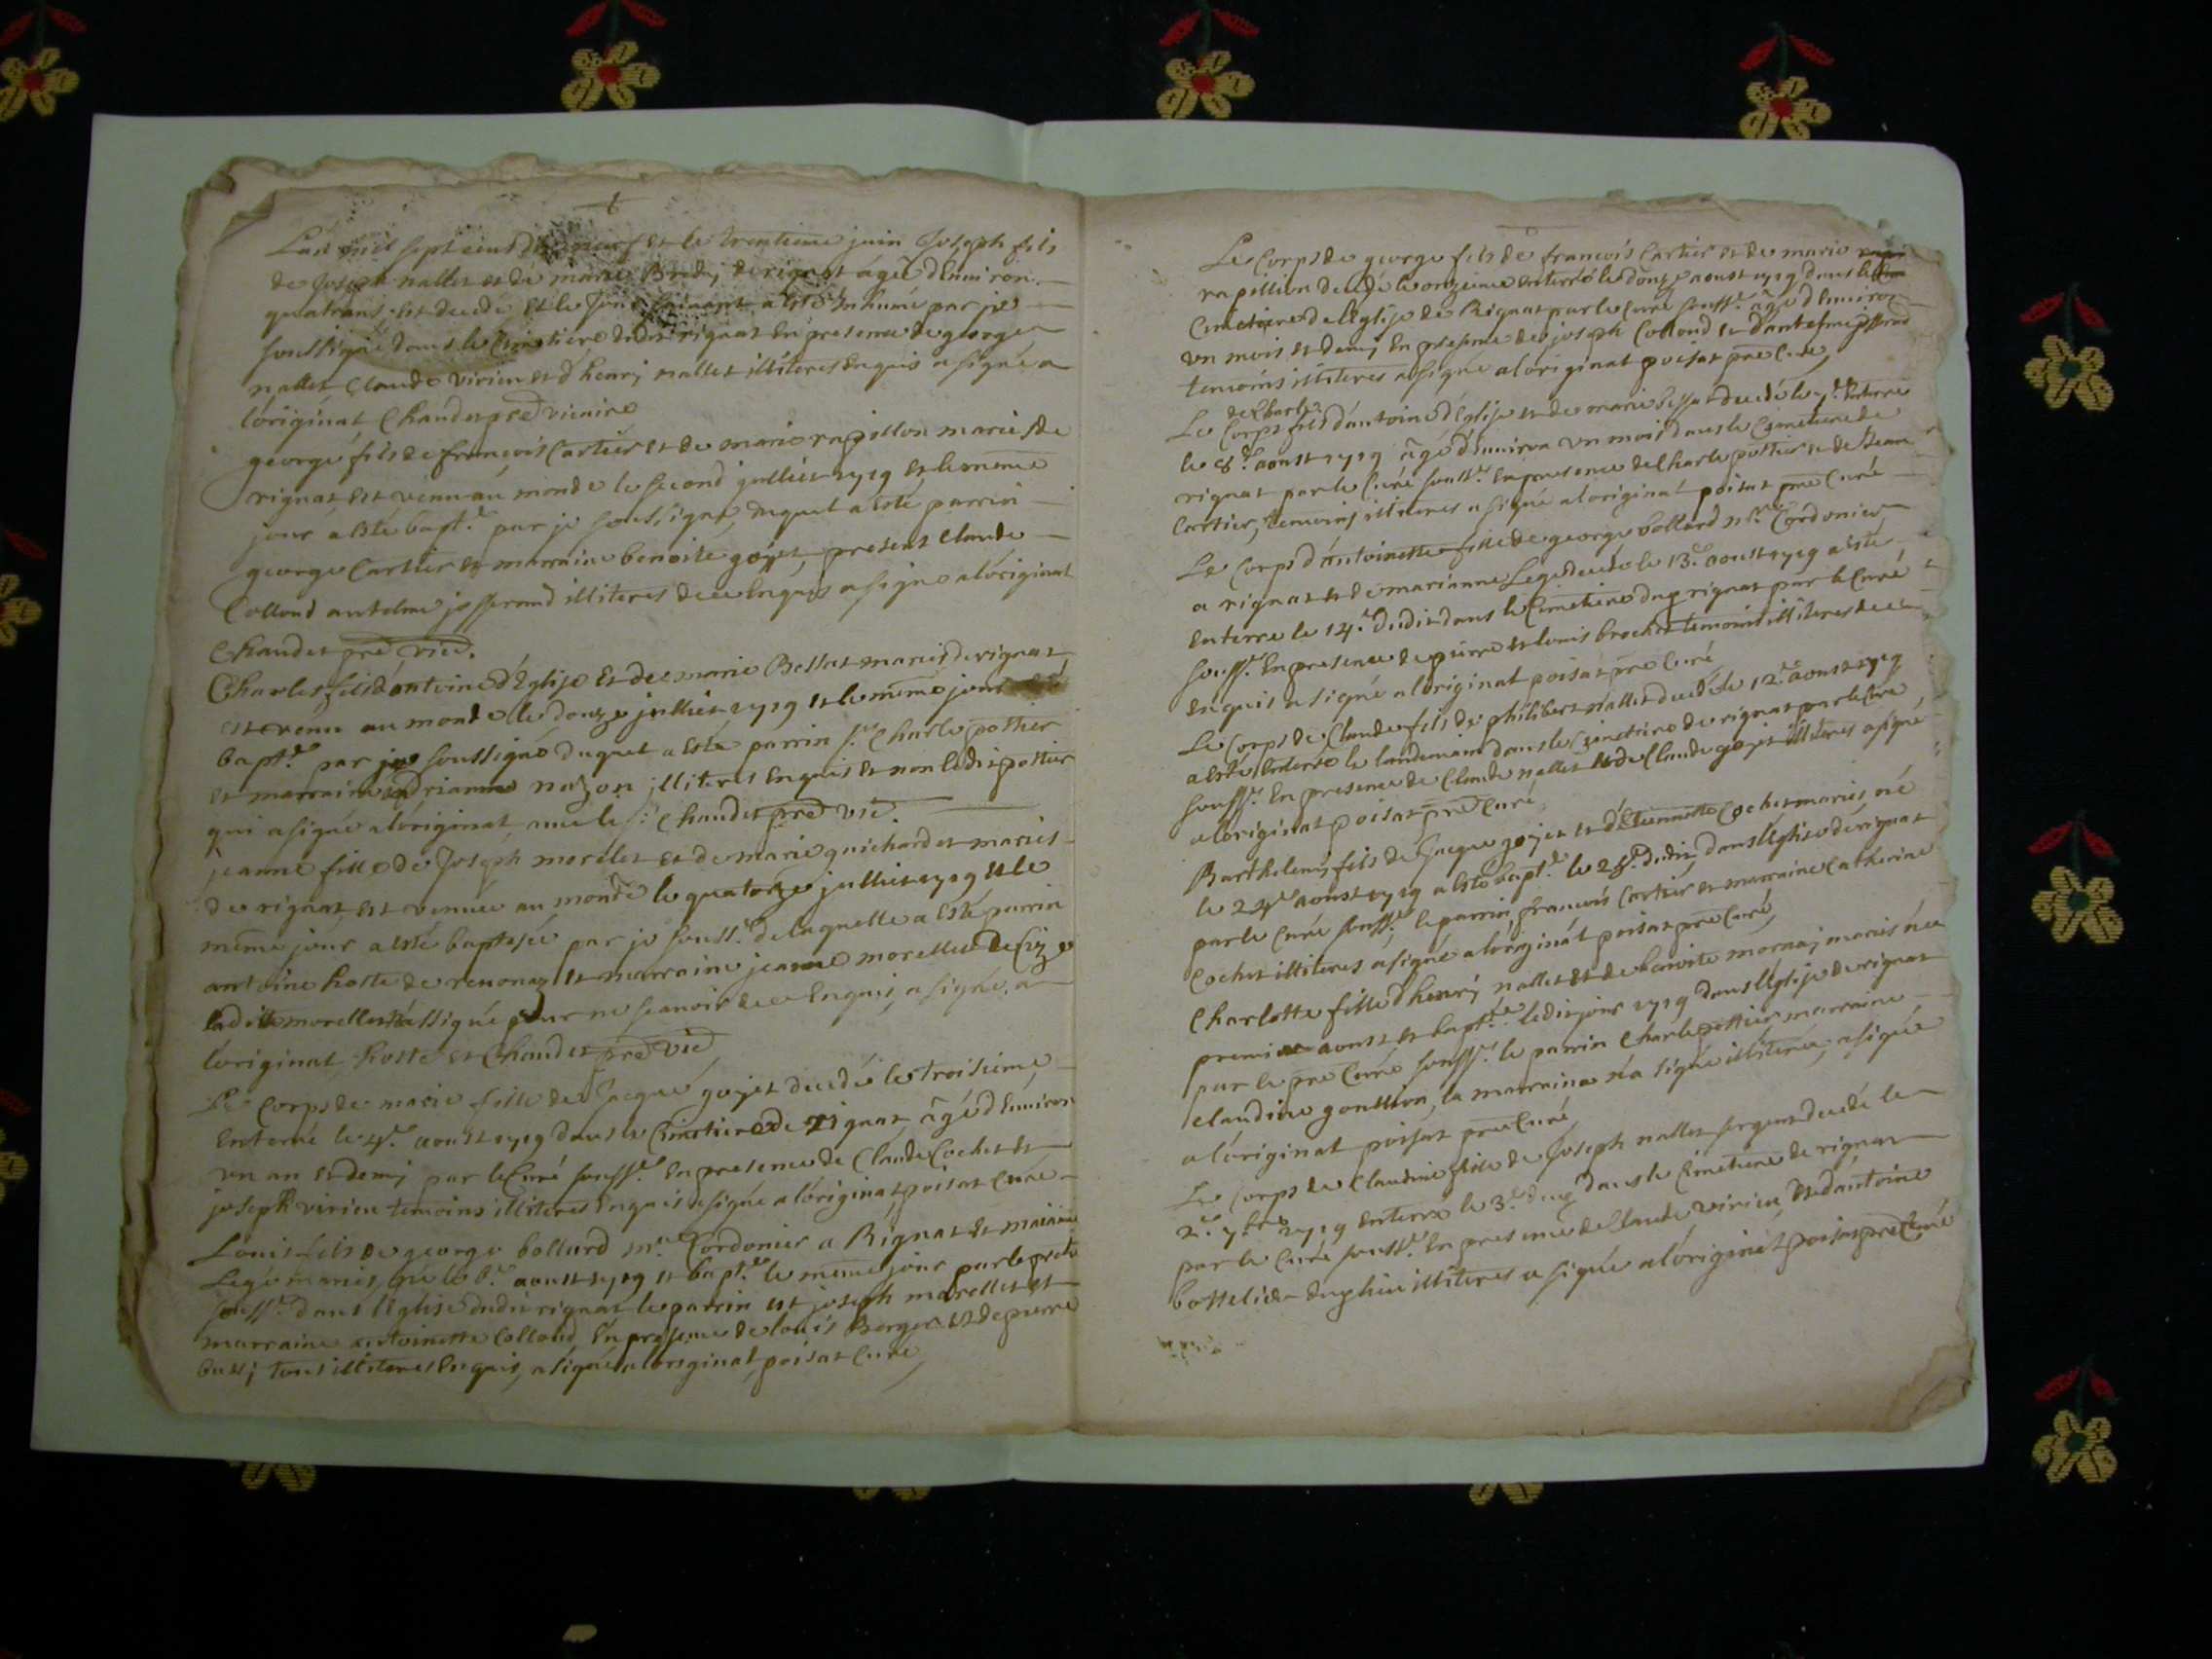 L'an mil sept cens dixneuf et le trentieme juin Joseph fils
de Joseph nallet et de marie de rignat âgé d'environ
quatrans est decedé et le jour suivant a esté inhumé par je
soussigné dans le Cimetiere dudit rignat en presence de george
nallet Claude virieu et d'henrj nallet illiteres enquis a signé a
l'original Chaudet pre vicaire
george fils de francois Cartier et de marie rapillon mariés de
rignat est venu au monde le second julliet 1719 et le meme
jour a esté bapt.é par je soussigné, duquel a esté parrin
george Cartier et marraine benoite gojet, present Claude
Collond antelme josserand illiteres de ce enquis a signé a l'original
Chaudet pre vic.
Charles fils d'antoine d'Eglise et de marie Bessat mariés de rignat
est venu au monde le douze julliet 1719 et le meme jour
bapt.é par je soussigné duquel a esté parrin s.r Charle pottier
et marraine adrianne nazon illiteres enquis et non ledit pottier
qui a signé a l'original, avec le s. Chaudet pre vic.
jeanne fille de Joseph morelet et de marie guichardet mariés
de rignat, est venuée au monde le quatorze julliet 1719 et le
meme jour a esté baptisée par je souss.é de laquelle a esté parrin
antoine hoste de renonay et marraine jeanne morellet de Cize
ladite morellet n'a signé pour ne scavoir de ce enquis, a signé a
l'original hoste et Chaudet pre vic
Le Corps de marie fille de Jacque gojet decedé le troisieme
enterré le 4.e aoust 1719 dans le Cimetiere de rignat, âgé d'environ
vn an et demj par le Curé souss.é en presence de Claude Cochet et
joseph virieu temoins illiteres enquis a signé a l'original poisat Curé
Louis fils de george bollard m.e Cordonier a Rignat et mariane
Legé mariés, né le 6.e aoust 1719 et bapt.é le meme jour par le pretre
souss.é dans l'Eglise dudit rignat le parrin est joseph morellet et
marraine antoinette Collond, en presence de louis Berger et de pierre
tous illiteres enquis, a signé a l'original, poisat Curé
Le Corps de george fils de francois Cartier et de marie
rapillion decedé le onzieme enterré le douze aoust 1719 dans le
Cimetiere de l'Eglise de Rignat par le Curé souss.é âgé d'environ
vn mois et demj en presence de joseph Collond et d'antelme josserand
temoins illiteres a signé a l'original poisat pre Curé
de Charle
Le Corps fils d'antoine d'Eglise et de marie bessat decedé le 7.e enterré
le 8.e aoust 1719 âgé d'environ vn mois dans le Cimetiere de
rignat par le Curé souss.é en presence de Charle pottier et de Jean
Cartier, temoins illiteres a signé a l'original poisat pre Curé
Le Corps d'antoinette fille de george bollard m.e Cordonier
a rignat et de marianne Legé decedé le 13.e aoust 1719 a esté
enterré le 14.e dudit dans le Cimetiere de rignat par le Curé
souss.é en presence de pierre et louis brochet temoins illiteres de ce
enquis a signé a l'original poisat pre Curé
Le Corps de Claude fils de philibert nallet decedé le 12.e aoust 1719
a esté enterré le landemain dans le Cimetiere de rignat par le Curé
souss.é en presence de Claude nallet et de Claude gojet illiteres a signé
a l'original poisat pre Curé
Barthelemj fils de Jacque gojet et d'Etiennette Cochet mariés, né
le 24.e aoust 1719 a esté bapt.é le 25.e dudit, dans l'Eglise de rignat
par le Curé souss.é le parrin francois Cartier et marraine Catherine
Cochet illiteres a signé a l'original poisat pre Curé
Charlotte fille d'henrj nallet et de benoite mornaj mariés née
premier aoust et bapt.ée ledit jour 1719 dans l'Eglise de rignat
par le pre Curé souss.é le parrin Charle pottier marraine
Claudine goullion, la marraine n'a signé illiterée, a signé
a l'original poisat pre Curé
Le Corps de Claudine fille de Joseph nallet sergent decedé le
2.e 7.bre 1719 enterré le 3.e dans le Cimetiere de rignat
par le Curé souss.é en presence de Claude virieu et d'antoine
bottelier illiteres a signé a l'original poisat pre Curé